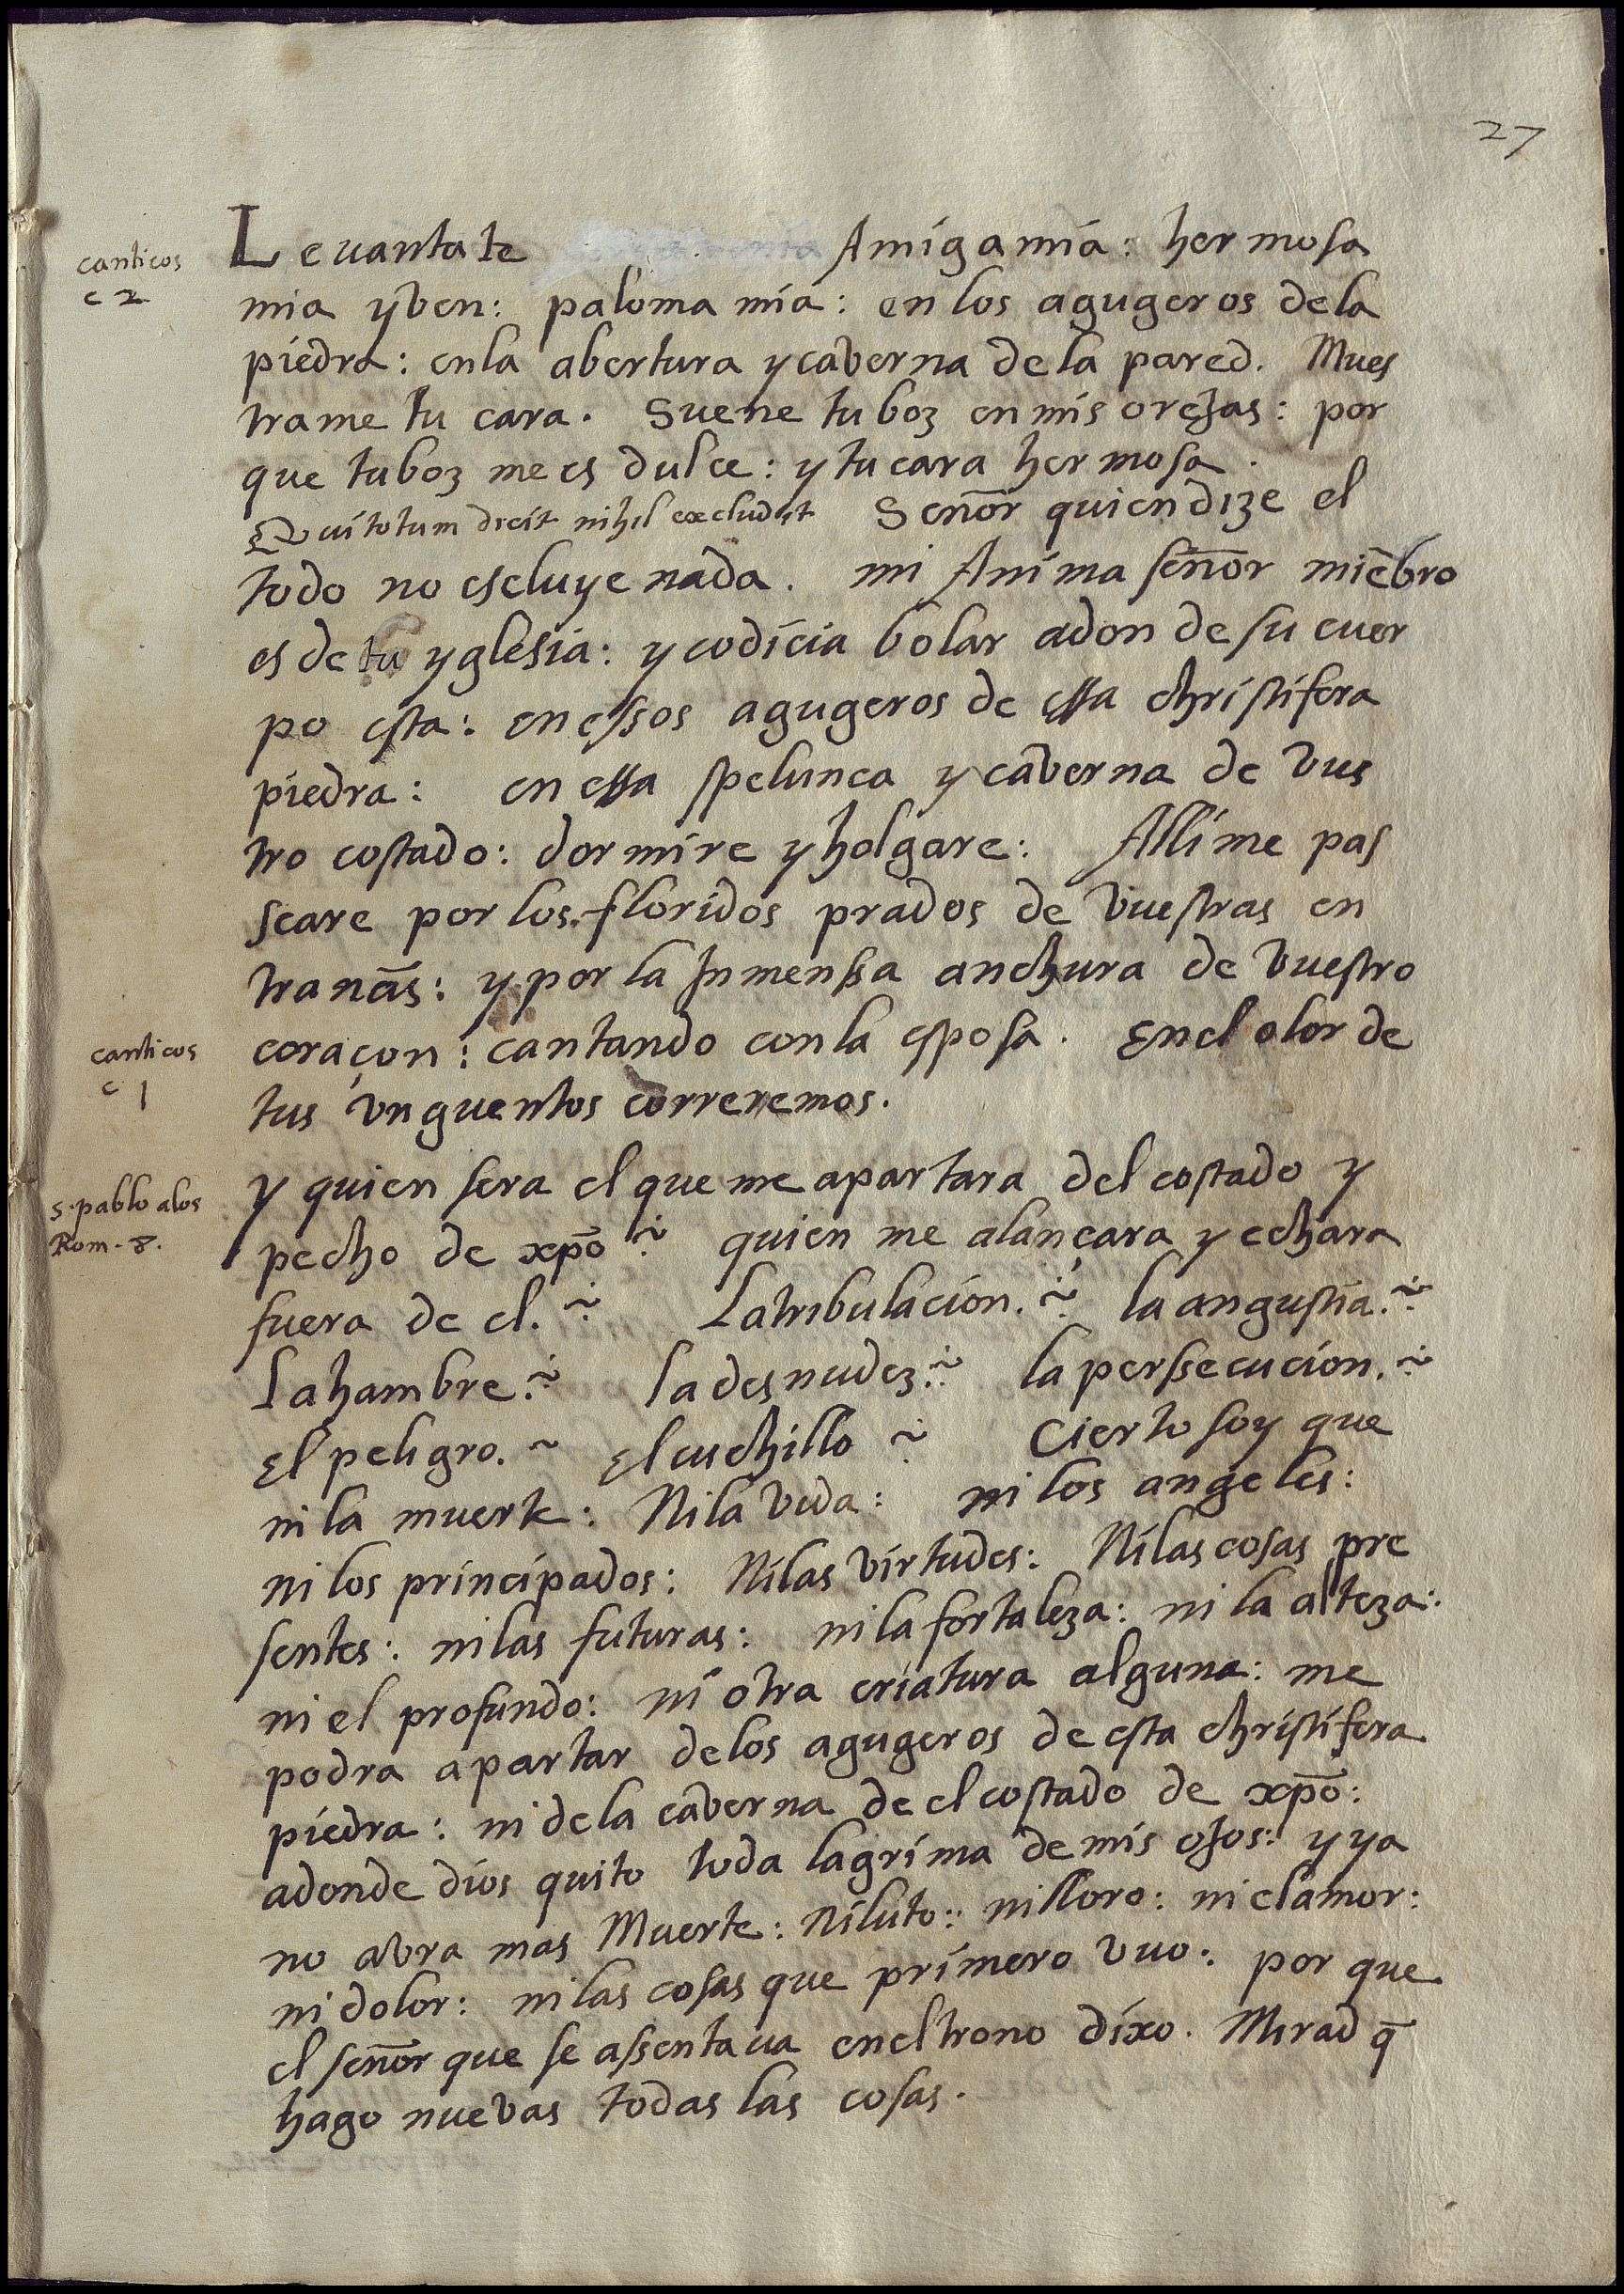 27
canticos
c 2
Leuantate Amiga mia: hermosa
mia y ven: paloma mia: en los agugeros de la
piedra: en la abertura y caverna de la pared. Mues
trame tu cara. Suene tu boz en mis orejas: por
que tu boz me es dulce: y tu cara hermosa.
Qui totum dicit nihil excludit Señor quien dize el
todo no escluye nada. mi Anima señor miēbro
es de tu yglesia: y codicia bolar adonde su cuer
po esta: en essos agugeros de essa christifera
piedra: en essa spelunca y caverna de vues
tro costado: dormire y holgare: Alli me pas
seare por los floridos prados de vuestras en
trañas: y por la Inmenssa anchura de vuestro
canticos
c 1
coraçon: cantando con la esposa. En el olor de
tus vnguentos correremos.
s. pablo a los
Rom. 8.
y quien sera el que me apartara del costado y
pecho de xp̄o ~: quien me alançara y echara
fuera de el. ~: La tribulacion. ~: la angustia. ~:
La hambre. ~: la desnudez ~: la perssecucion. ~:
El peligro. ~ El cuchillo ~: Cierto soy que
ni la muerte: Ni la vida: ni los angeles:
ni los principados: Ni las virtudes: Ni las cosas pre
sentes: ni las futuras: ni la fortaleza: ni la alteza:
ni el profundo: ni otra criatura alguna: me
podra apartar de los agugeros de esta christifera
piedra: ni de la caverna de el costado de xp̄o:
adonde dios quito toda lagrima de mis ojos: y ya
no avra mas Muerte: Ni luto: ni lloro: ni clamor:
ni dolor: ni las cosas que primero vuo: por que
el señor que se assentaua en el trono dixo. Mirad q̄
hago nuevas todas las cosas.